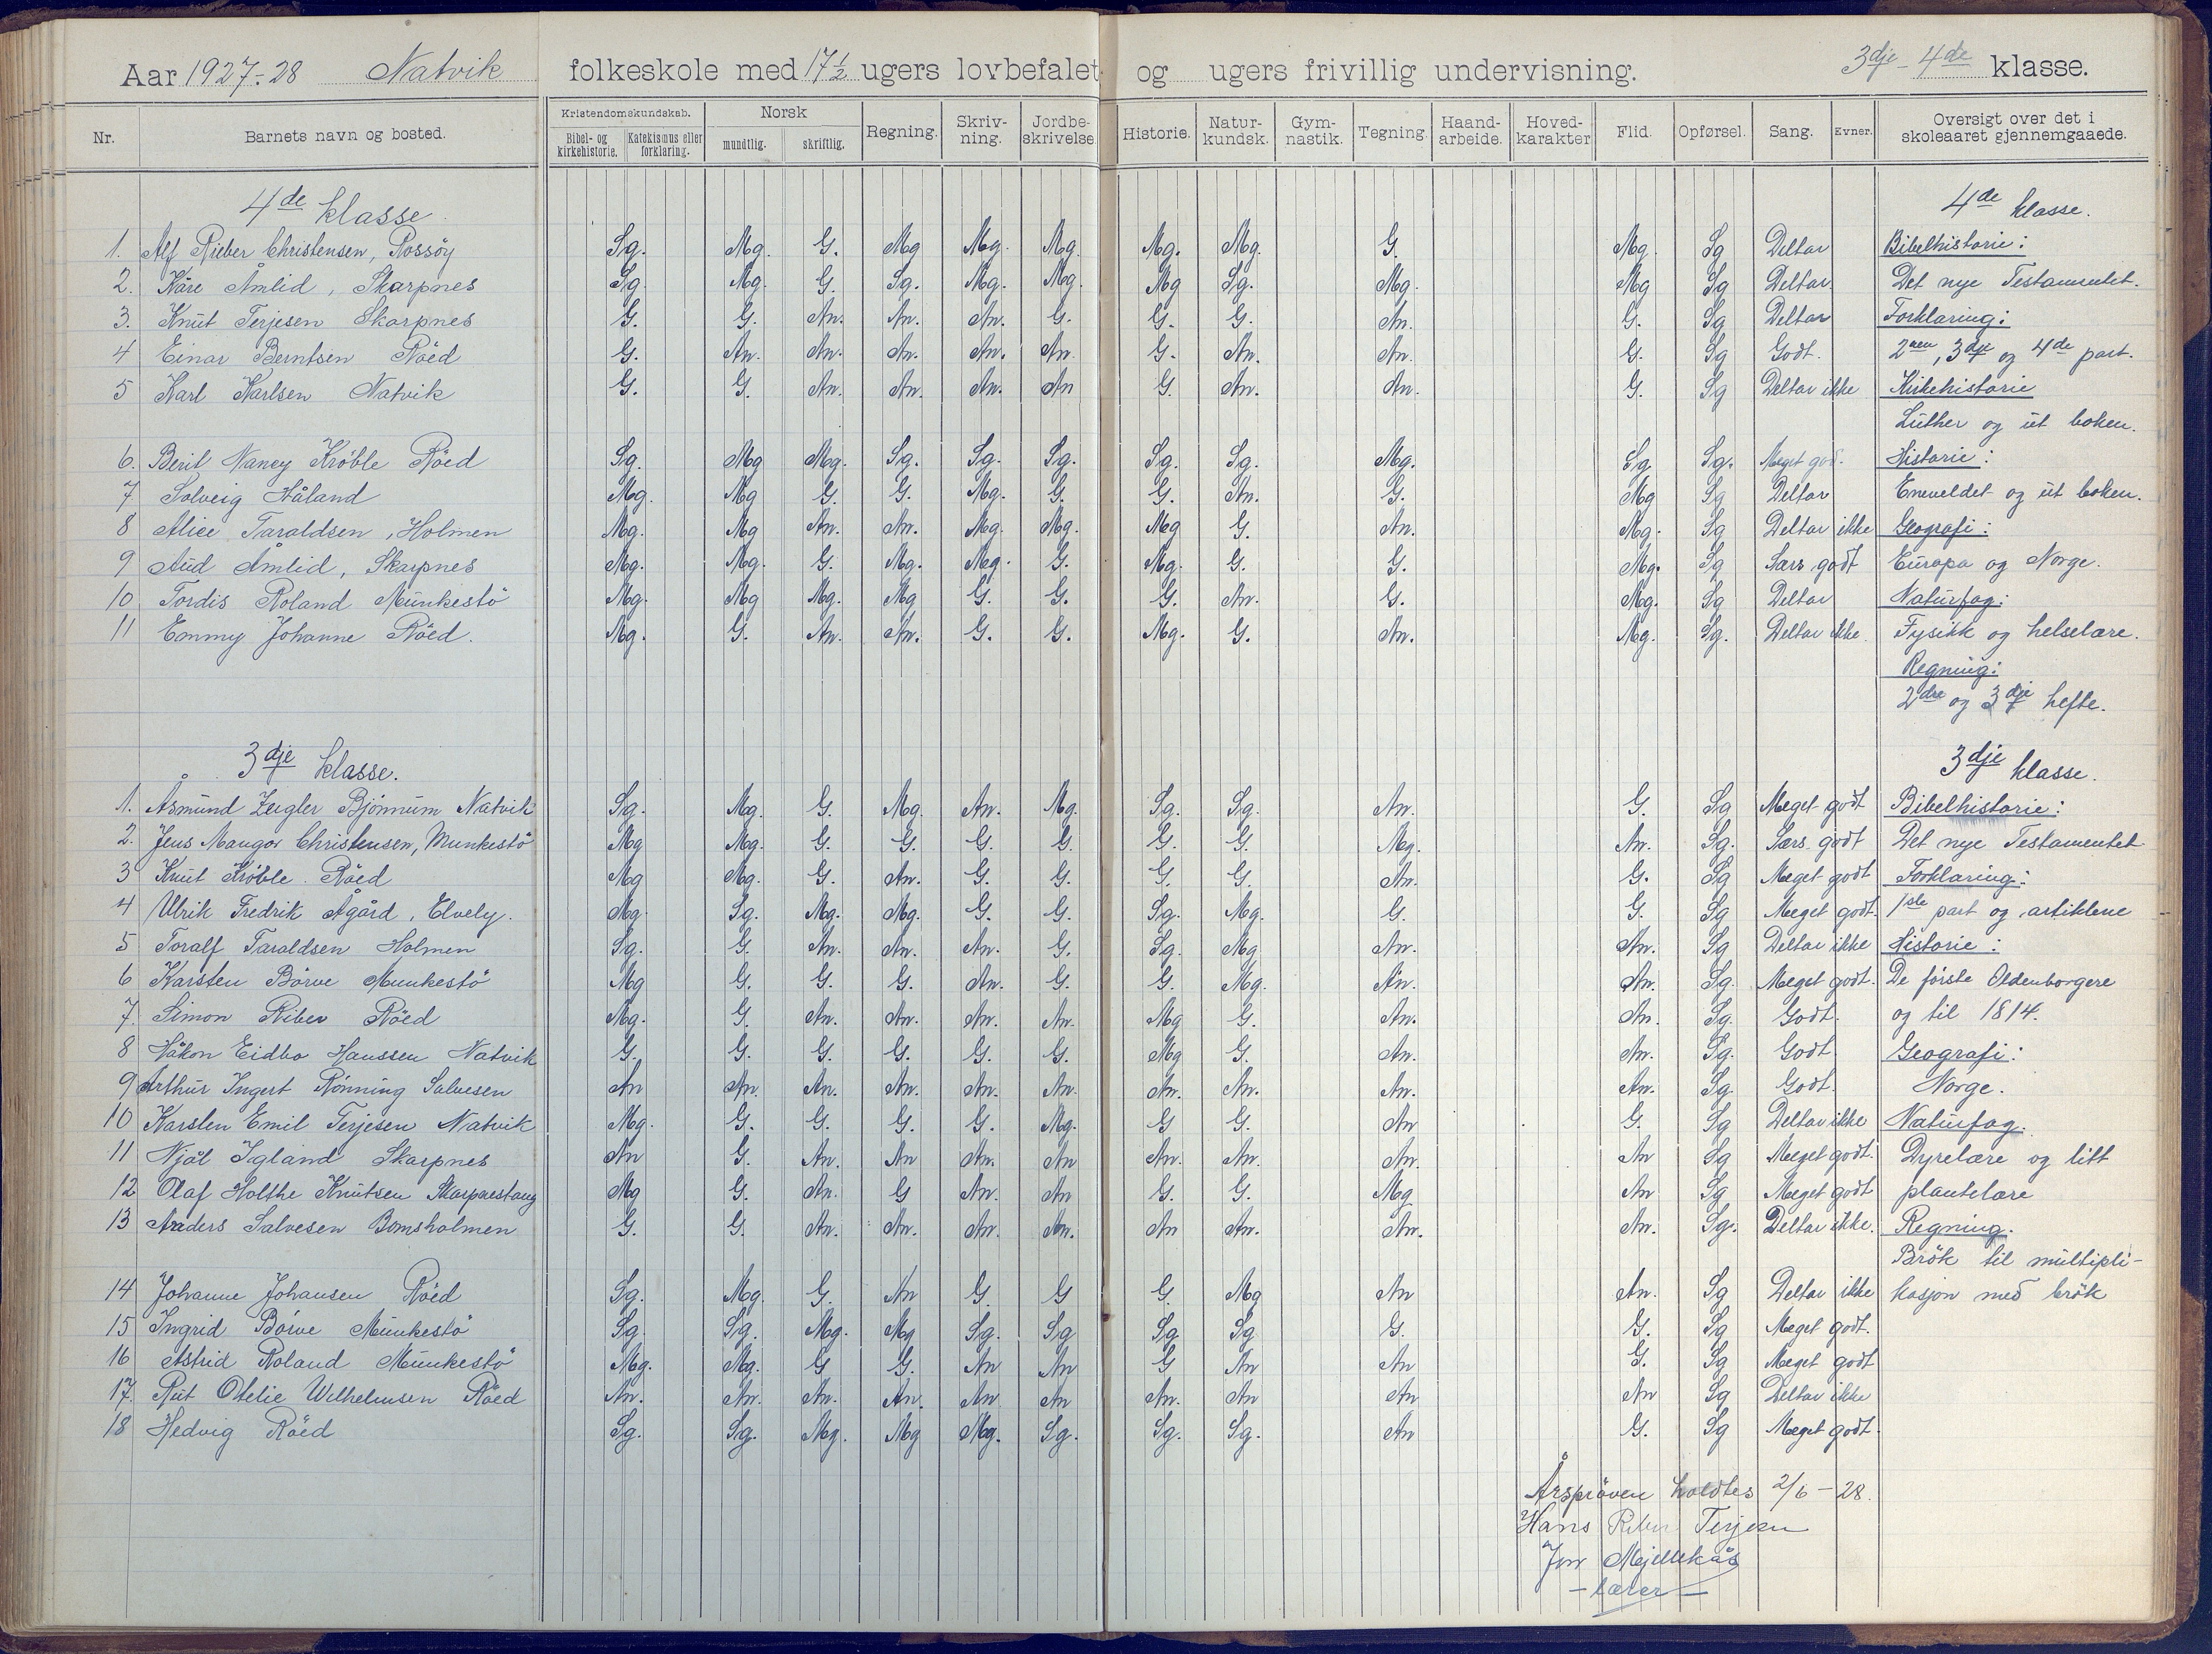 Aar 1927-28 Natvik folkeskole med 17½ ugers lovbefalet og ugers frivillig undervisning. 3dje - 4de klasse.
Nr. Barnets navn og bosted. Kristendomskundskab. Bibel- og kirkehistorie. Katekismus eller forklaring. Norsk mundtlig. skriftlig. Regning. Skriv-ning. Jordbe-skrivelse. Historie. Natur-kundsk. Gym-nastik. Tegning. Haand-arbeide. Hoved-karakter Flid. Opførsel. Sang. Evner. Oversigt over det i skoleaaret gjennemgaaede.
4de klasse. 4de klasse.
1. Alf Rieber Christensen, Rossöy Sg. Mg. G. Mg Mg. Mg. Mg. Mg. G. Mg. Sg Deltar Bibelhistorie:
2. Kåre Åmlid, Skarpnes Sg Mg. G. Sg. Mg. Mg. Mg Sg. Mg. Mg Sg Deltar Det nye Testamentet.
3. Knut Terjesen Skarpnes G. G. An. An. An. G. G. G. An. G. Sg Deltar Forklaring:
4 Einar Berntsen Röed G. An. An. An. An. An. G. An. An. G. Sg Godt. 2nen, 3dje og 4de part.
5 Karl Karlsen Natvik G. G. An. An. An. An G. An. An. G. Sg Deltar ikke Kirkehistorie
Luther og ut boken.
6. Beril Nancy Kröble Röed Sg. Mg Mg. Sg. Sg. Sg. Sg. Sg. Mg. Sg. Sg. Meget god. Historie:
7 Solveig Håland Mg. Mg G. G. Mg. G. G. An. G. Mg Sg Deltar Eneveldet og ut boken.
8 Alice Taraldsen, Holmen Mg. Mg An. An. Mg. Mg. Mg G. An. Mg. Sg Deltar ikke Geografi:
9 Aud Åmlid, Skarpnes Mg. Mg. G. Mg. Mg. G. Mg. G. G. Mg. Sg Særs godt Europa og Norge.
10 Tordis Roland Munkestö Mg. Mg Mg. Mg G. G. G. An. G. Mg. Sg Deltar Naturfag:
11 Emmy Johanne Röed. Mg. G. An. An. G. G. Mg. G. An. Mg. Sg. Deltar ikke. Fysikk og helselære.
Regning:
2dre og 3dje hefte.
3dje klasse. 3dje klasse.
1. Åsmund Zeigler Bjönnum Natvik Sg. Mg. G. Mg. An. Mg. Sg. Sg. An. G. Sg Meget godt Bibelhistorie:
2. Jens Mangor Christensen, Munkestö Mg Mg. G. G. G. G. G. G. Mg. An. Sg. Særs godt Det nye Testamentet
3 Knut Kröble Röed Mg Mg. G. An. G. G. G. G. An. G. Sg Meget godt Forklaring:
4 Ulrik Fredrik Ågård, Elvely. Mg. Sg. Mg. Mg. G. G. Sg. Mg. G. G. Sg Meget godt. 1ste part og artiklene
5 Toralf Taraldsen Holmen Sg. G. An. An. An. G. Sg. Mg An. An. Sg Deltar ikke Historie:
6 Karsten Börve Munkestö Mg G. G. G. An. G. G. Mg. An. An. Sg. Meget godt. De förste Oldenborgere
7. Simon Riber Röed Mg. G. An. An. An. An. Mg G. An. An. Sg. Godt. og til 1814.
8 Håkon Eidbo Hanssen Natvik G. G. G. G. G. G. Mg G. An. An. Sg. Godt. Geografi:
9 Arthur Ingert Rönning Salvesen An An. An. An. An. An. An. An. An. An. Sg. Godt. Norge.
10 Karsten Emil Terjesen Natvik Mg. G. G. G. G. Mg. G G. An G. Sg Deltar ikke Naturfag.
11 Njål Igland Skarpnes An G. An. An An. An An. An. An. An Sg Meget godt. Dyrelære og litt
12 Olaf Holthe Knutsen Skarpnestang Mg G. An. G An. An G. G. Mg An Sg Meget godt plantelære
13 Anders Salvesen Bomsholmen G. G. An. An. An. An. An An. An. An. Sg. Deltar ikke. Regning.
Brök til multipli-
14 Johanne Johansen Röed Sg. Mg. G. An G. G G. Mg An An. Sg Deltar ikke kasjon med brök
15 Ingrid Börve Munkestö Sg. Sg. Mg. Mg Sg. Sg Sg Sg G. G. Sg Meget godt.
16 Astrid Roland Munkestö Mg. Mg. G G. An An G An An G. Sg Meget godt
17. Rut Otelie Wilhelmsen Röed An. An. An. An. An An An. An An An Sg Deltar ikke
18 Hedvig Röed Sg. Sg. Mg. Mg Mg. Sg. Sg. Sg. An G. Sg Meget godt.
Årspröven holdtes 2/6-28.
Hans Riber Terjesen
Jon Mjellekås
- lærer -